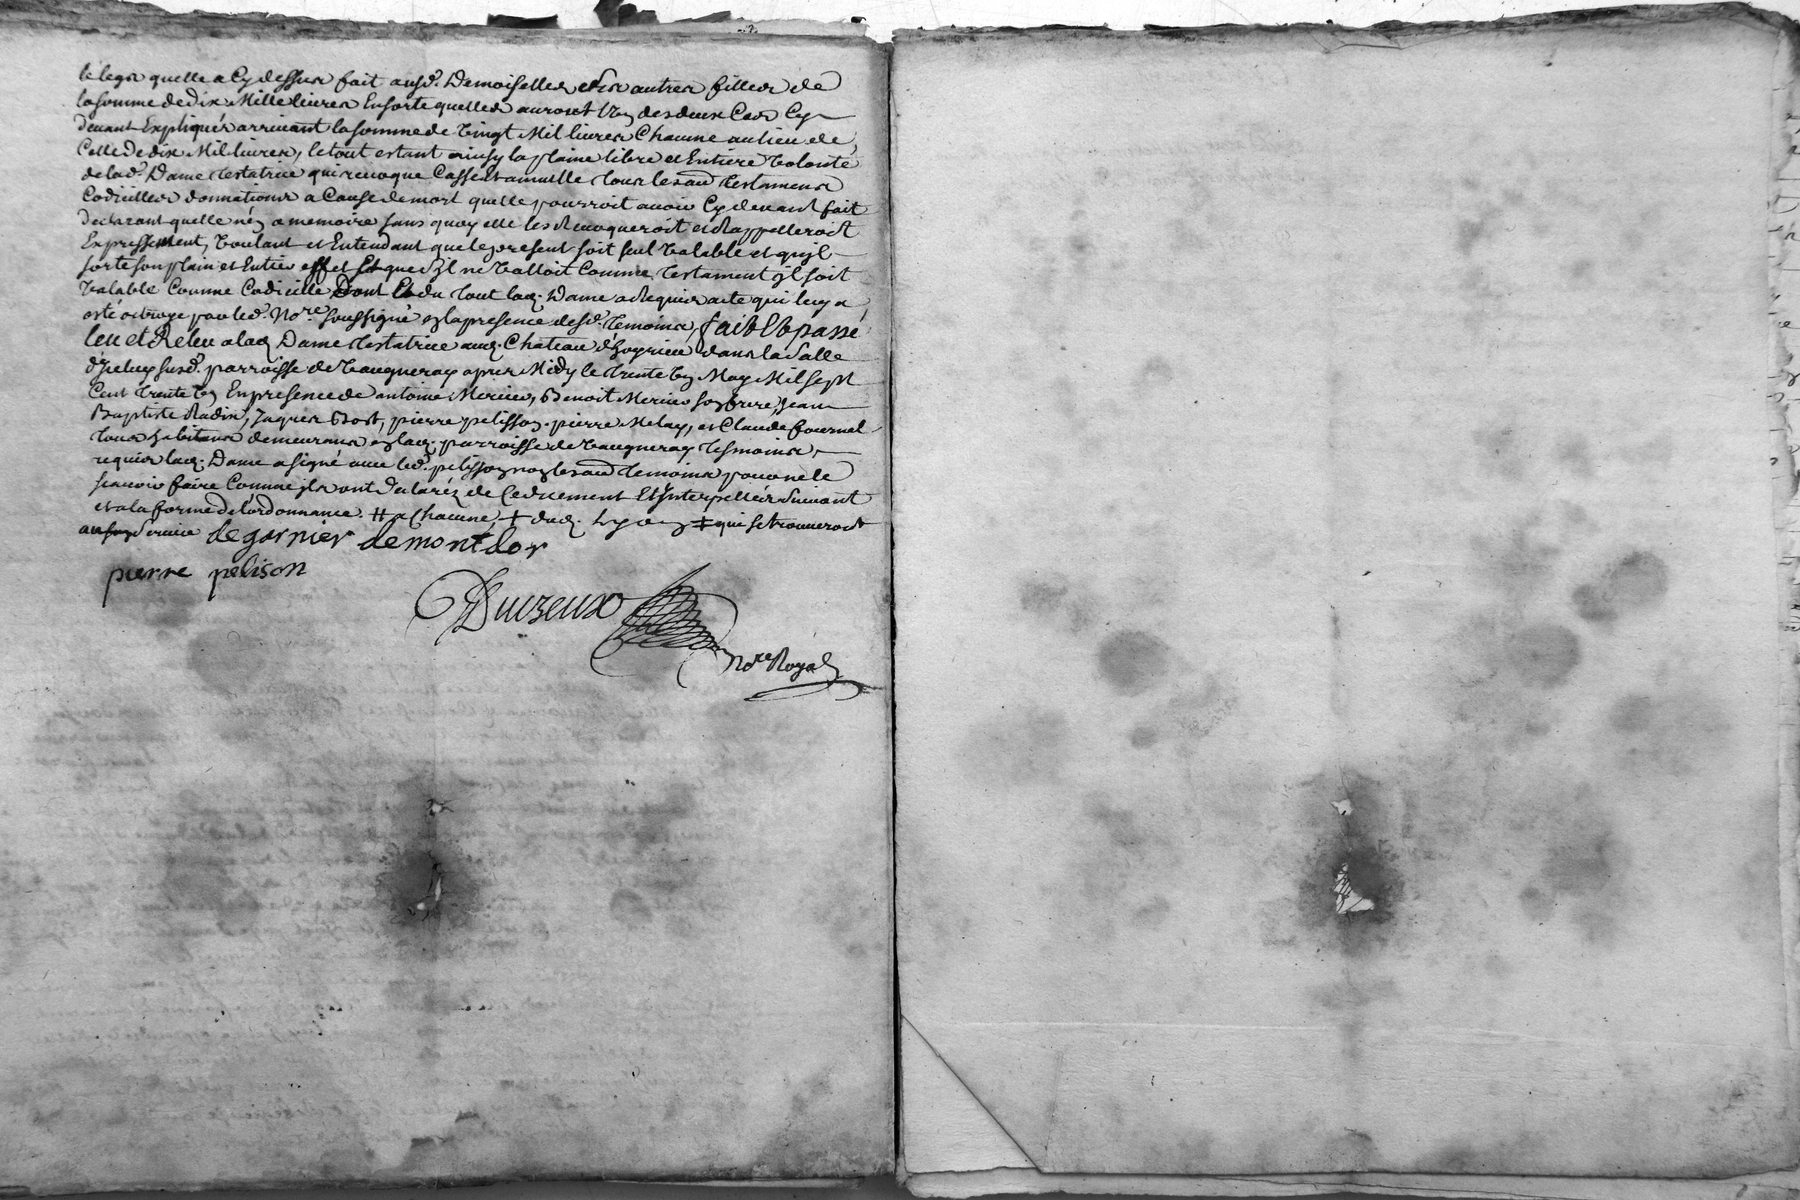 le legs quelle a Cy dessus fait ausd. Demoiselles et ses autres filles de
la somme de dix Mille livres En sorte quelles auront Un des deux Cas Cy
devant Expliqués arrivant la somme de Vingt Mil livres Chacune au lieu de
Celle de dix Mil livres, le tout estant ainsy la plaine libre et Entiere Volonté
de lad. Dame testatrice qui revoque Casse et annulle tous les aud. testamens
Codicilles donnations a Cause de mort quelle pourroit avoir Cy devant fait
declarant quelle n'en a memoire sans quoy elle les Revoqueroit et Rappelleroit
Expressement, Voulant et Entendant que le present soit seul Valable et qu'jl
sorte son plain et Entier effet Et que s'jl ne Valloit Comme testament jl soit
Valable Comme Codicille Dont Et du tout lad. Dame a Requis acte qui luy a
esté octroyé par led. No.re soussigné en la presence desd. temoins, fait Et passé
leu et Releu a lad. Dame testatrice aud. Chateau dans la Salle
d'jceluy susd. parroisse de Vaugneray apres Midy le trente Un May Mil sept
Cent trente Un En presence de antoine Mercier, Benoit Mercier son frere, Jean
Baptiste Radix, Jaques Bost, pierre pelisson, pierre Melay, et Claude fournel
tous habitans demeurans en lad. parroisse de Vaugneray tesmoins
requis lad. Dame a signé avec led. pelisson non les aud. temoins pour ne le
scavoir faire Comme jls ont declaréz de Ce deuement Et Interpelléz Suivant
et a la forme de l'ordonnance. # a Chacune, + dud. Lyon ‡ qui se trouveront
a son service de garnier de montdor
pierre pelison
Duizeux
No.re Royal